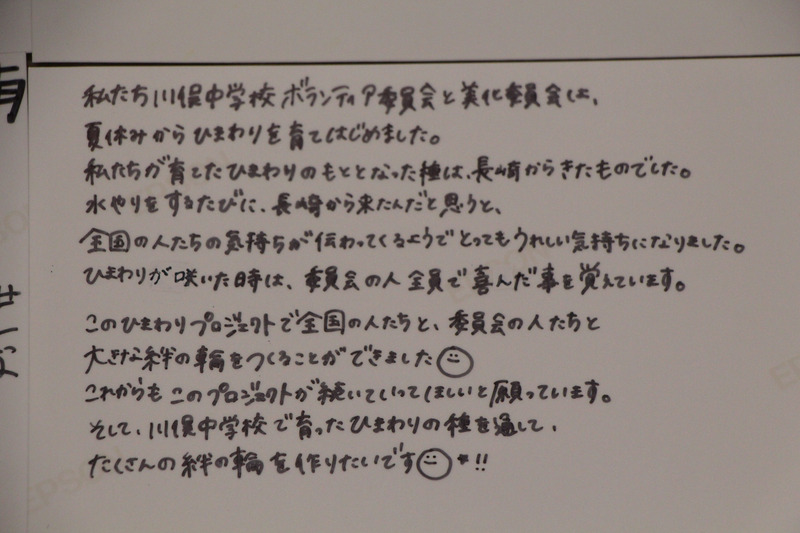 私たち川俣中学校ボランティア委員会と美化委員会は、
夏休みからひまわりを育てはじめました。
私たちが育てたひまわりのもととなった種は、長崎からきたものでした。
水やりをするたびに、長崎から来たんだと思うと、
全国の人たちの気持ちが伝わってくるようでとってもうれしい気持ちになりました。
ひまわりが咲いた日時は、委員会の人全員で喜んだ事を覚えています。
このひまわりプロジェクトで全国の人たちと、委員会の人たちと
大きな絆の輪をつくることができました
これからもこのプロジェクトが続いていってほしいと願っています。
そして、川俣中学校で育ったひまわりの種を通して、
たくさんの絆の輪を作りたいです*!!
EPSON